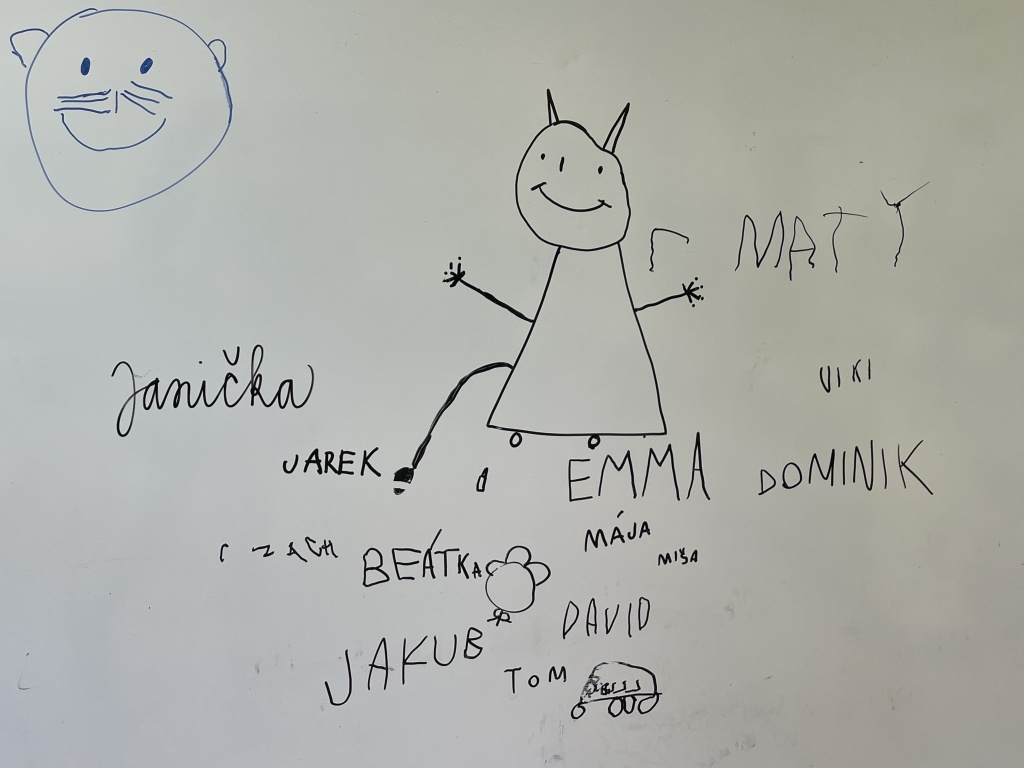 MATY
VIKI
Janička
JAREK
EMMA
DOMINIK
MÁJA
MIŠA
BEÁTKA
DAVID
JAKUB
TOM